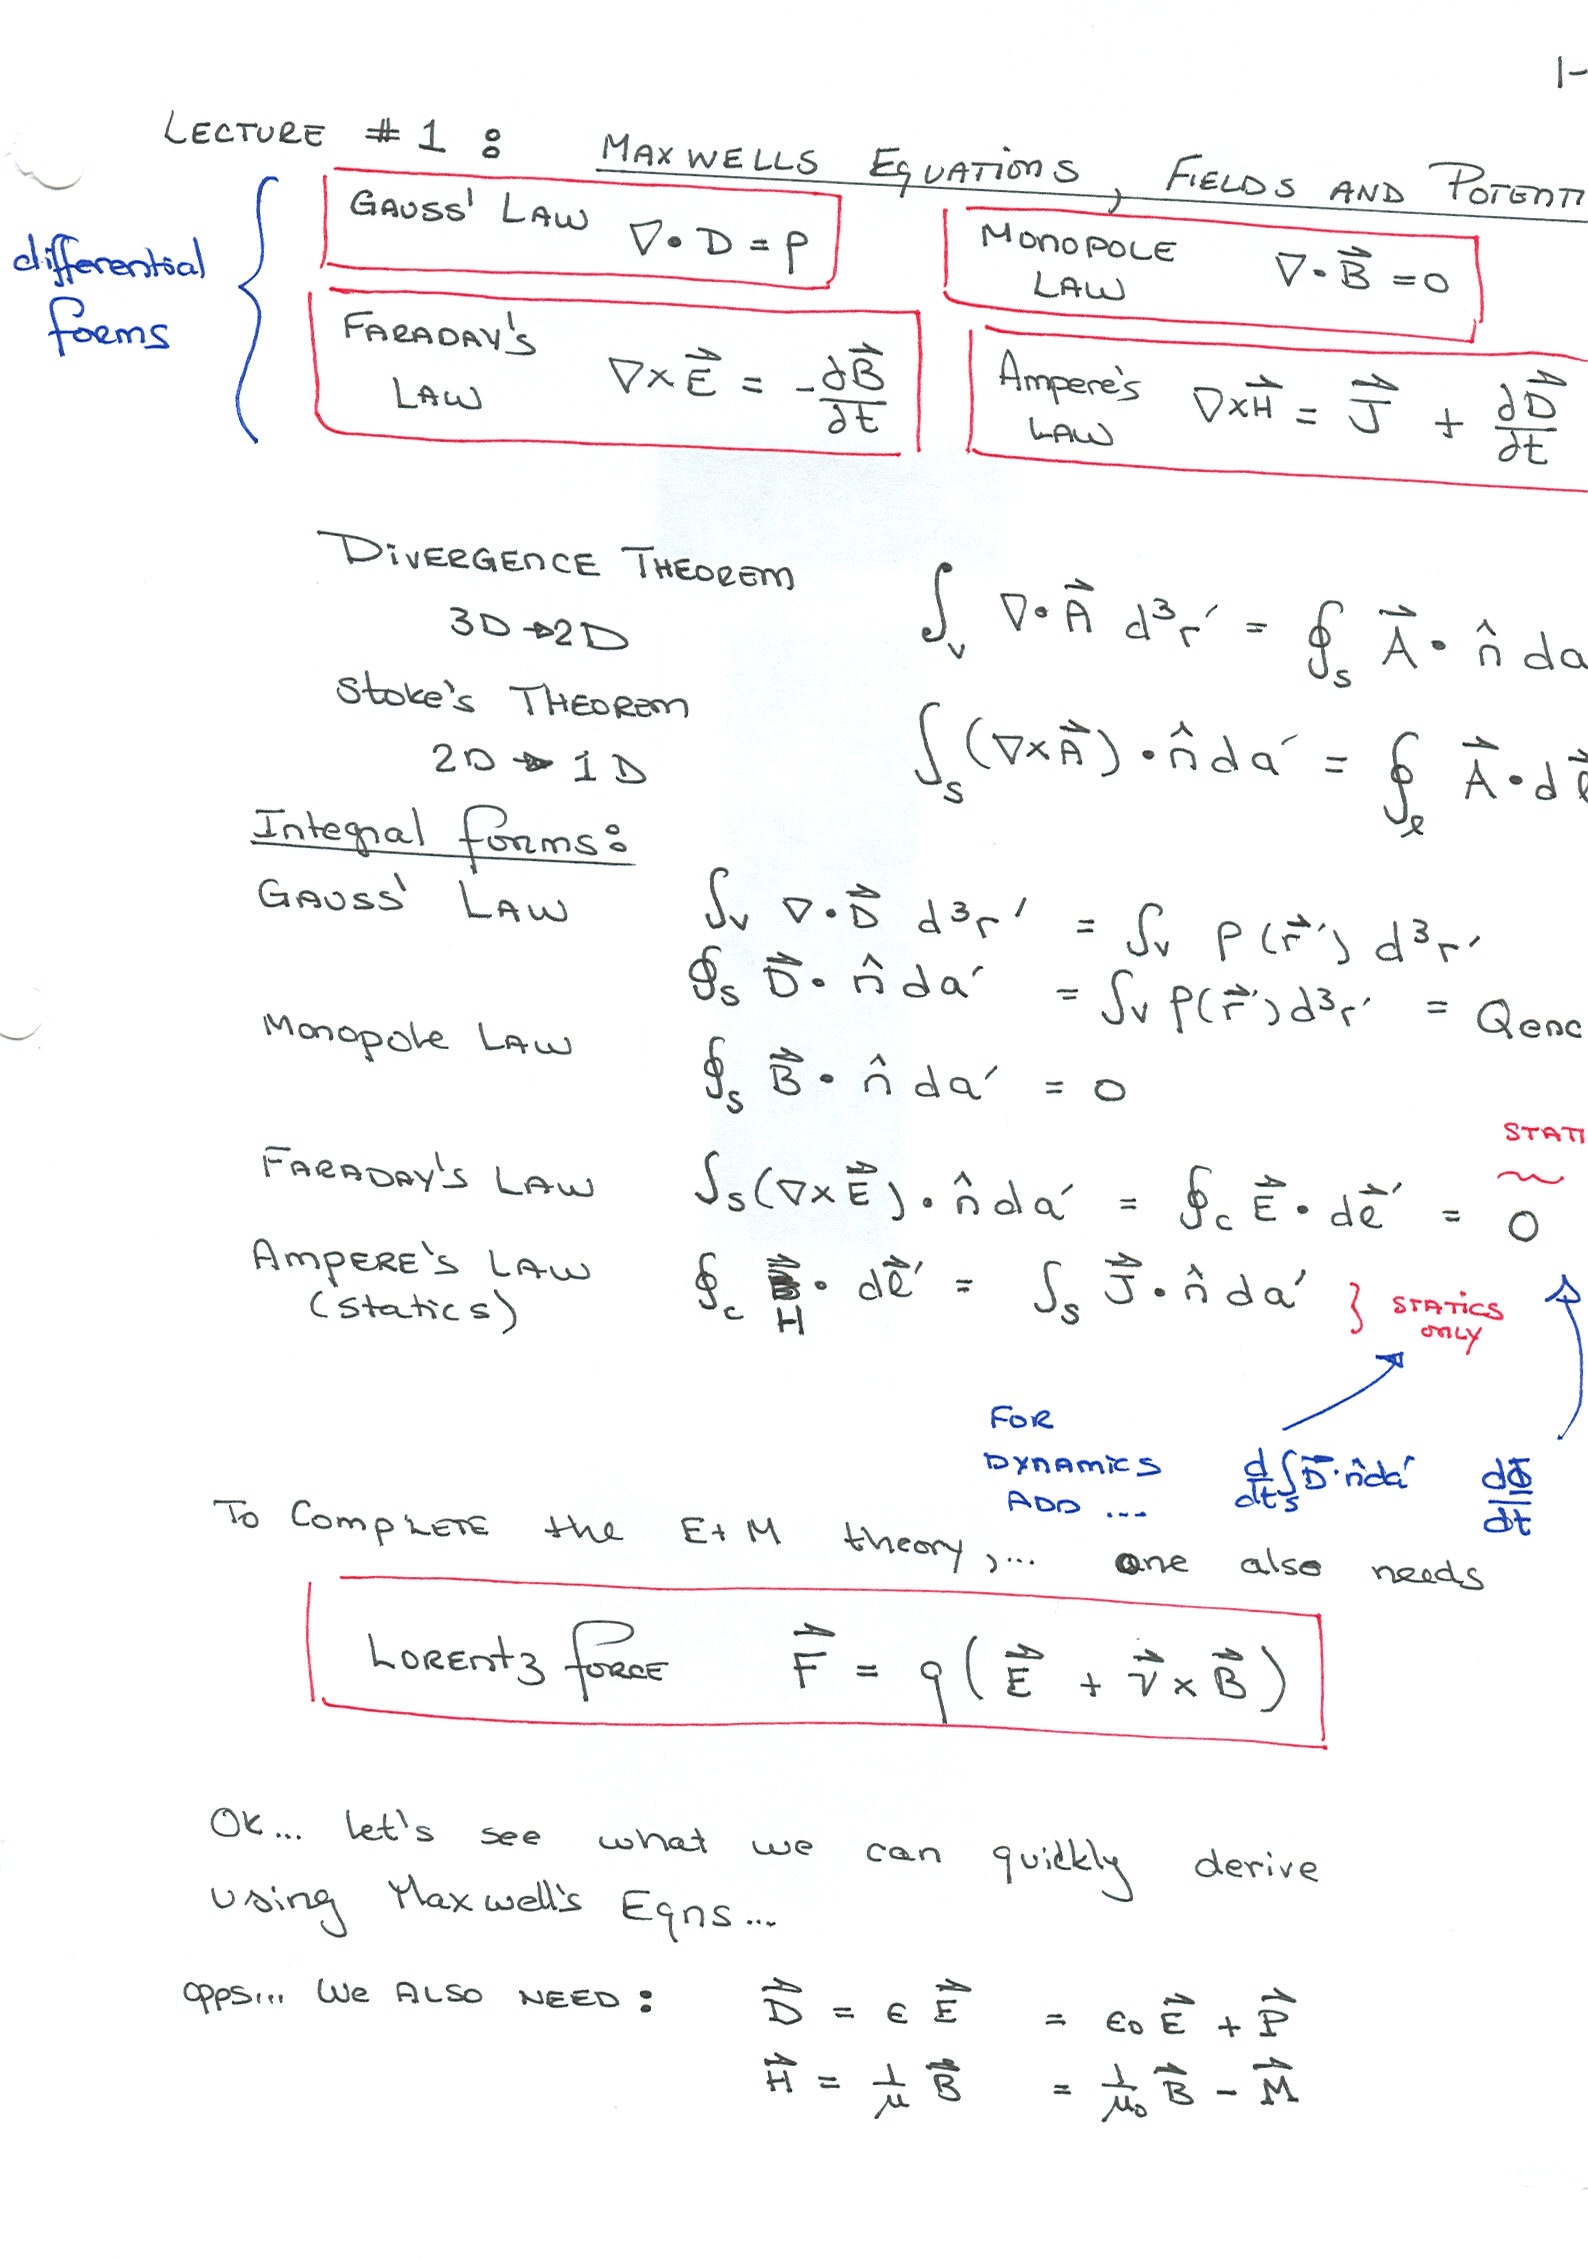 1-
LECTURE #1: MAXWELLS EQUATIONS, FIELDS AND POTENTI
differential forms
GAUSS' LAW ∇•D = ρ
MONOPOLE LAW ∇•B⃗ = 0
FARADAY'S LAW ∇×E⃗ = -∂B⃗/∂t
Ampere's LAW ∇×H⃗ = J⃗ + ∂D⃗/∂t
DIVERGENCE THEOREM ∫_V ∇•A⃗ d³r′ = ∮_S A⃗•n̂ da
3D→2D
Stoke's THEOREM ∫_S (∇×A⃗)•n̂ da′ = ∮_ℓ A⃗•dℓ⃗
2D→1D
Integral forms:
GAUSS' LAW ∫_V ∇•D⃗ d³r′ = ∫_V ρ(r⃗′) d³r′
∮_S D⃗•n̂ da′ = ∫_V ρ(r⃗′) d³r′ = Qenc
Monopole LAW ∮_S B⃗•n̂ da′ = 0
STATI
FARADAY'S LAW ∫_S (∇×E⃗)•n̂ da′ = ∮_C E⃗•dℓ⃗′ = 0
AMPERE'S LAW (statics) ∮_C H⃗•dℓ⃗′ = ∫_S J⃗•n̂ da′ } STATICS ONLY
FOR DYNAMICS ADD ... d/dt ∫_S D⃗•n̂da′ dΦ/dt
To COMPLETE the E+M theory,... one also needs
LORENTZ force F⃗ = q(E⃗ + v⃗×B⃗)
OK... let's see what we can quickly derive
using Maxwell's Eqns...
opps... WE ALSO NEED: D⃗ = ϵE⃗ = ϵ₀E⃗ + P⃗
H⃗ = 1/μ B⃗ = 1/μ₀ B⃗ - M⃗